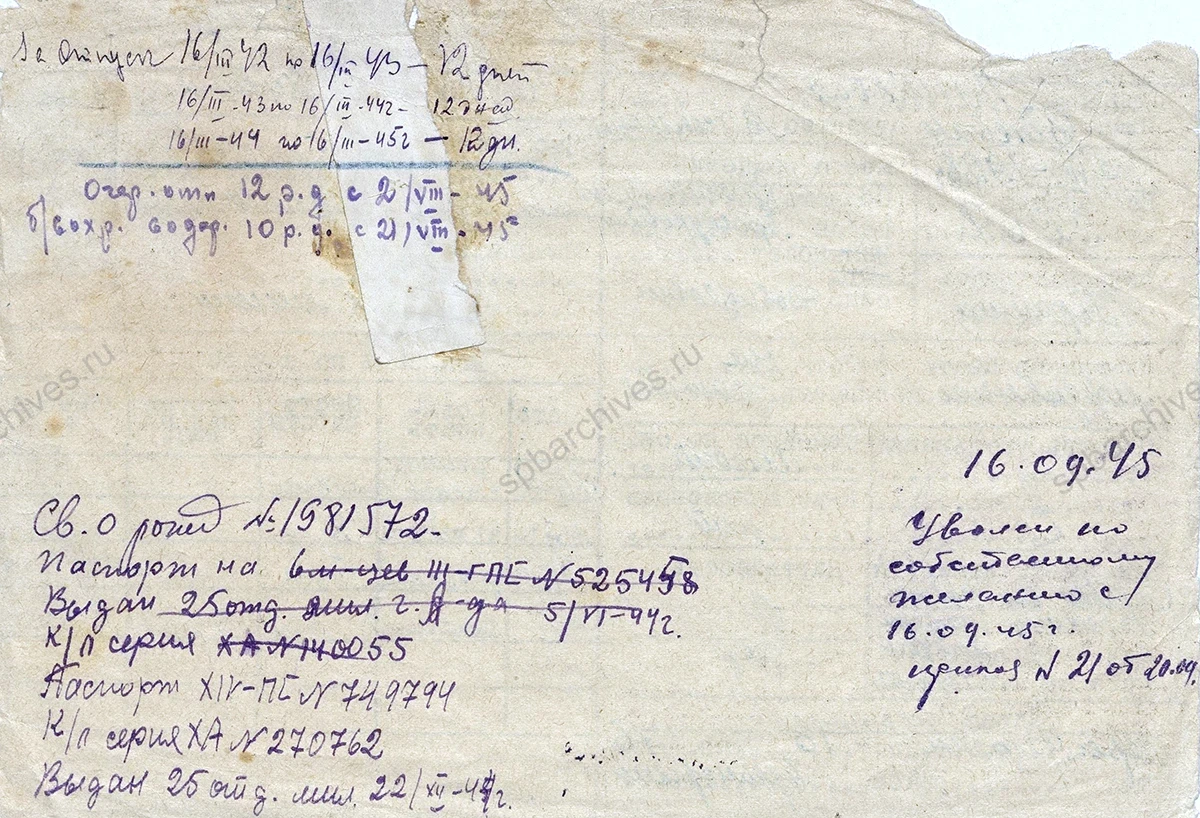 За отпуск 16/III 42 по 16/III 43 — 12 дней
16/III-43 по 16/III-44г- 12 дней
16/III-44 по 16/III-45г — 12 дн.
Очер. отп 12 р.д с 2/VIII-45
б/сохр. содер. 10 р.д. с 21/VIII-45
16.09.45
Св. о рожд № 1981572.
Паспорт на 6 м-цев III-ГПЕ N 525498
Выдан 25 отд. мил. г. Л-да 5/VI-44г.
К/п серия ХА N 140055
Паспорт XIV-ПЕ N 749794
К/п серия ХА N 270762
Выдан 25 отд. мил. 22/XII-44г.
Уволен по
собственному
желанию с
16.09.45г.
приказ N 21 от 20.09.
spbarchives.ru